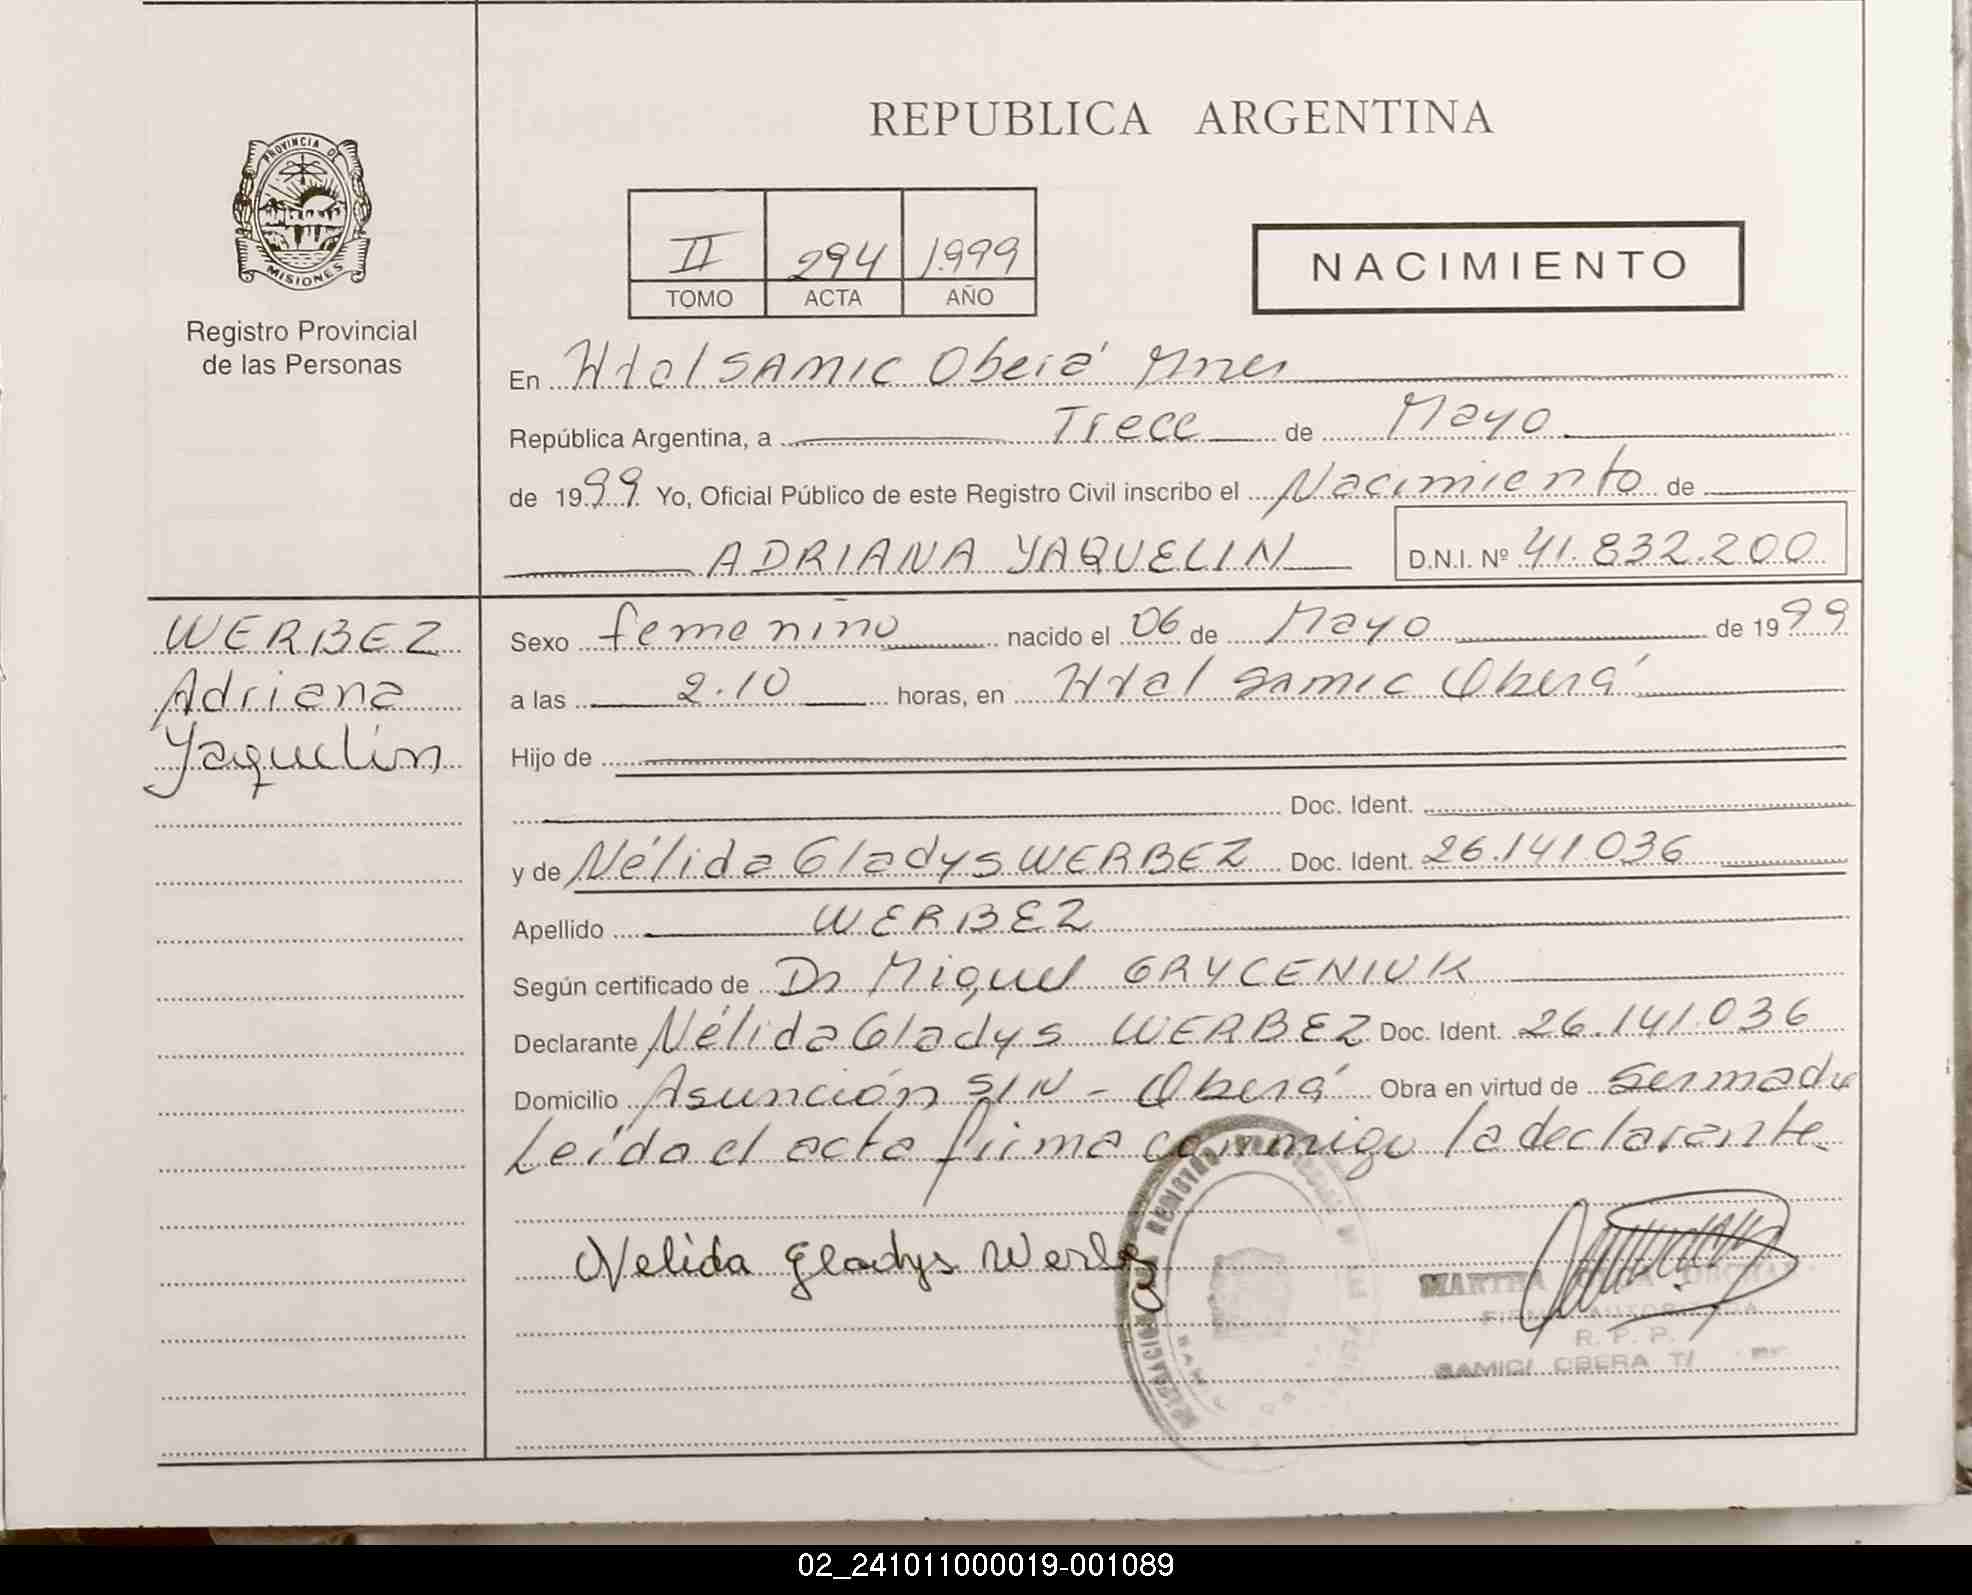 REPUBLICA ARGENTINA
PROVINCIA DE
MISIONES
Registro Provincial
de las Personas
II 294 1.999
TOMO ACTA AÑO
NACIMIENTO
En Htal SAMIC Oberá Mnes
República Argentina, a Trece de Mayo
de 1999 Yo, Oficial Público de este Registro Civil inscribo el Nacimiento de
ADRIANA YAQUELIN D.N.I. Nº 41.832.200
WERBEZ
Adriana
Yaquelin
Sexo femenino nacido el 06 de Mayo de 1999
a las 2.10 horas, en Htal Samic Oberá
Hijo de
Doc. Ident.
y de Nélida Gladys WERBEZ Doc. Ident. 26.141.036
Apellido WERBEZ
Según certificado de Dr Miguel GRYCENIUK
Declarante Nélida Gladys WERBEZ Doc. Ident. 26.141.036
Domicilio Asunción S/N - Oberá Obra en virtud de ser madre
Leída el acta firma conmigo la declarante
Nelida Gladys Werbez
REGISTRO
MARTHA
FIRMA AUTORIZADA
R. P. P.
SAMIC/ OBERA T/
02_241011000019-001089